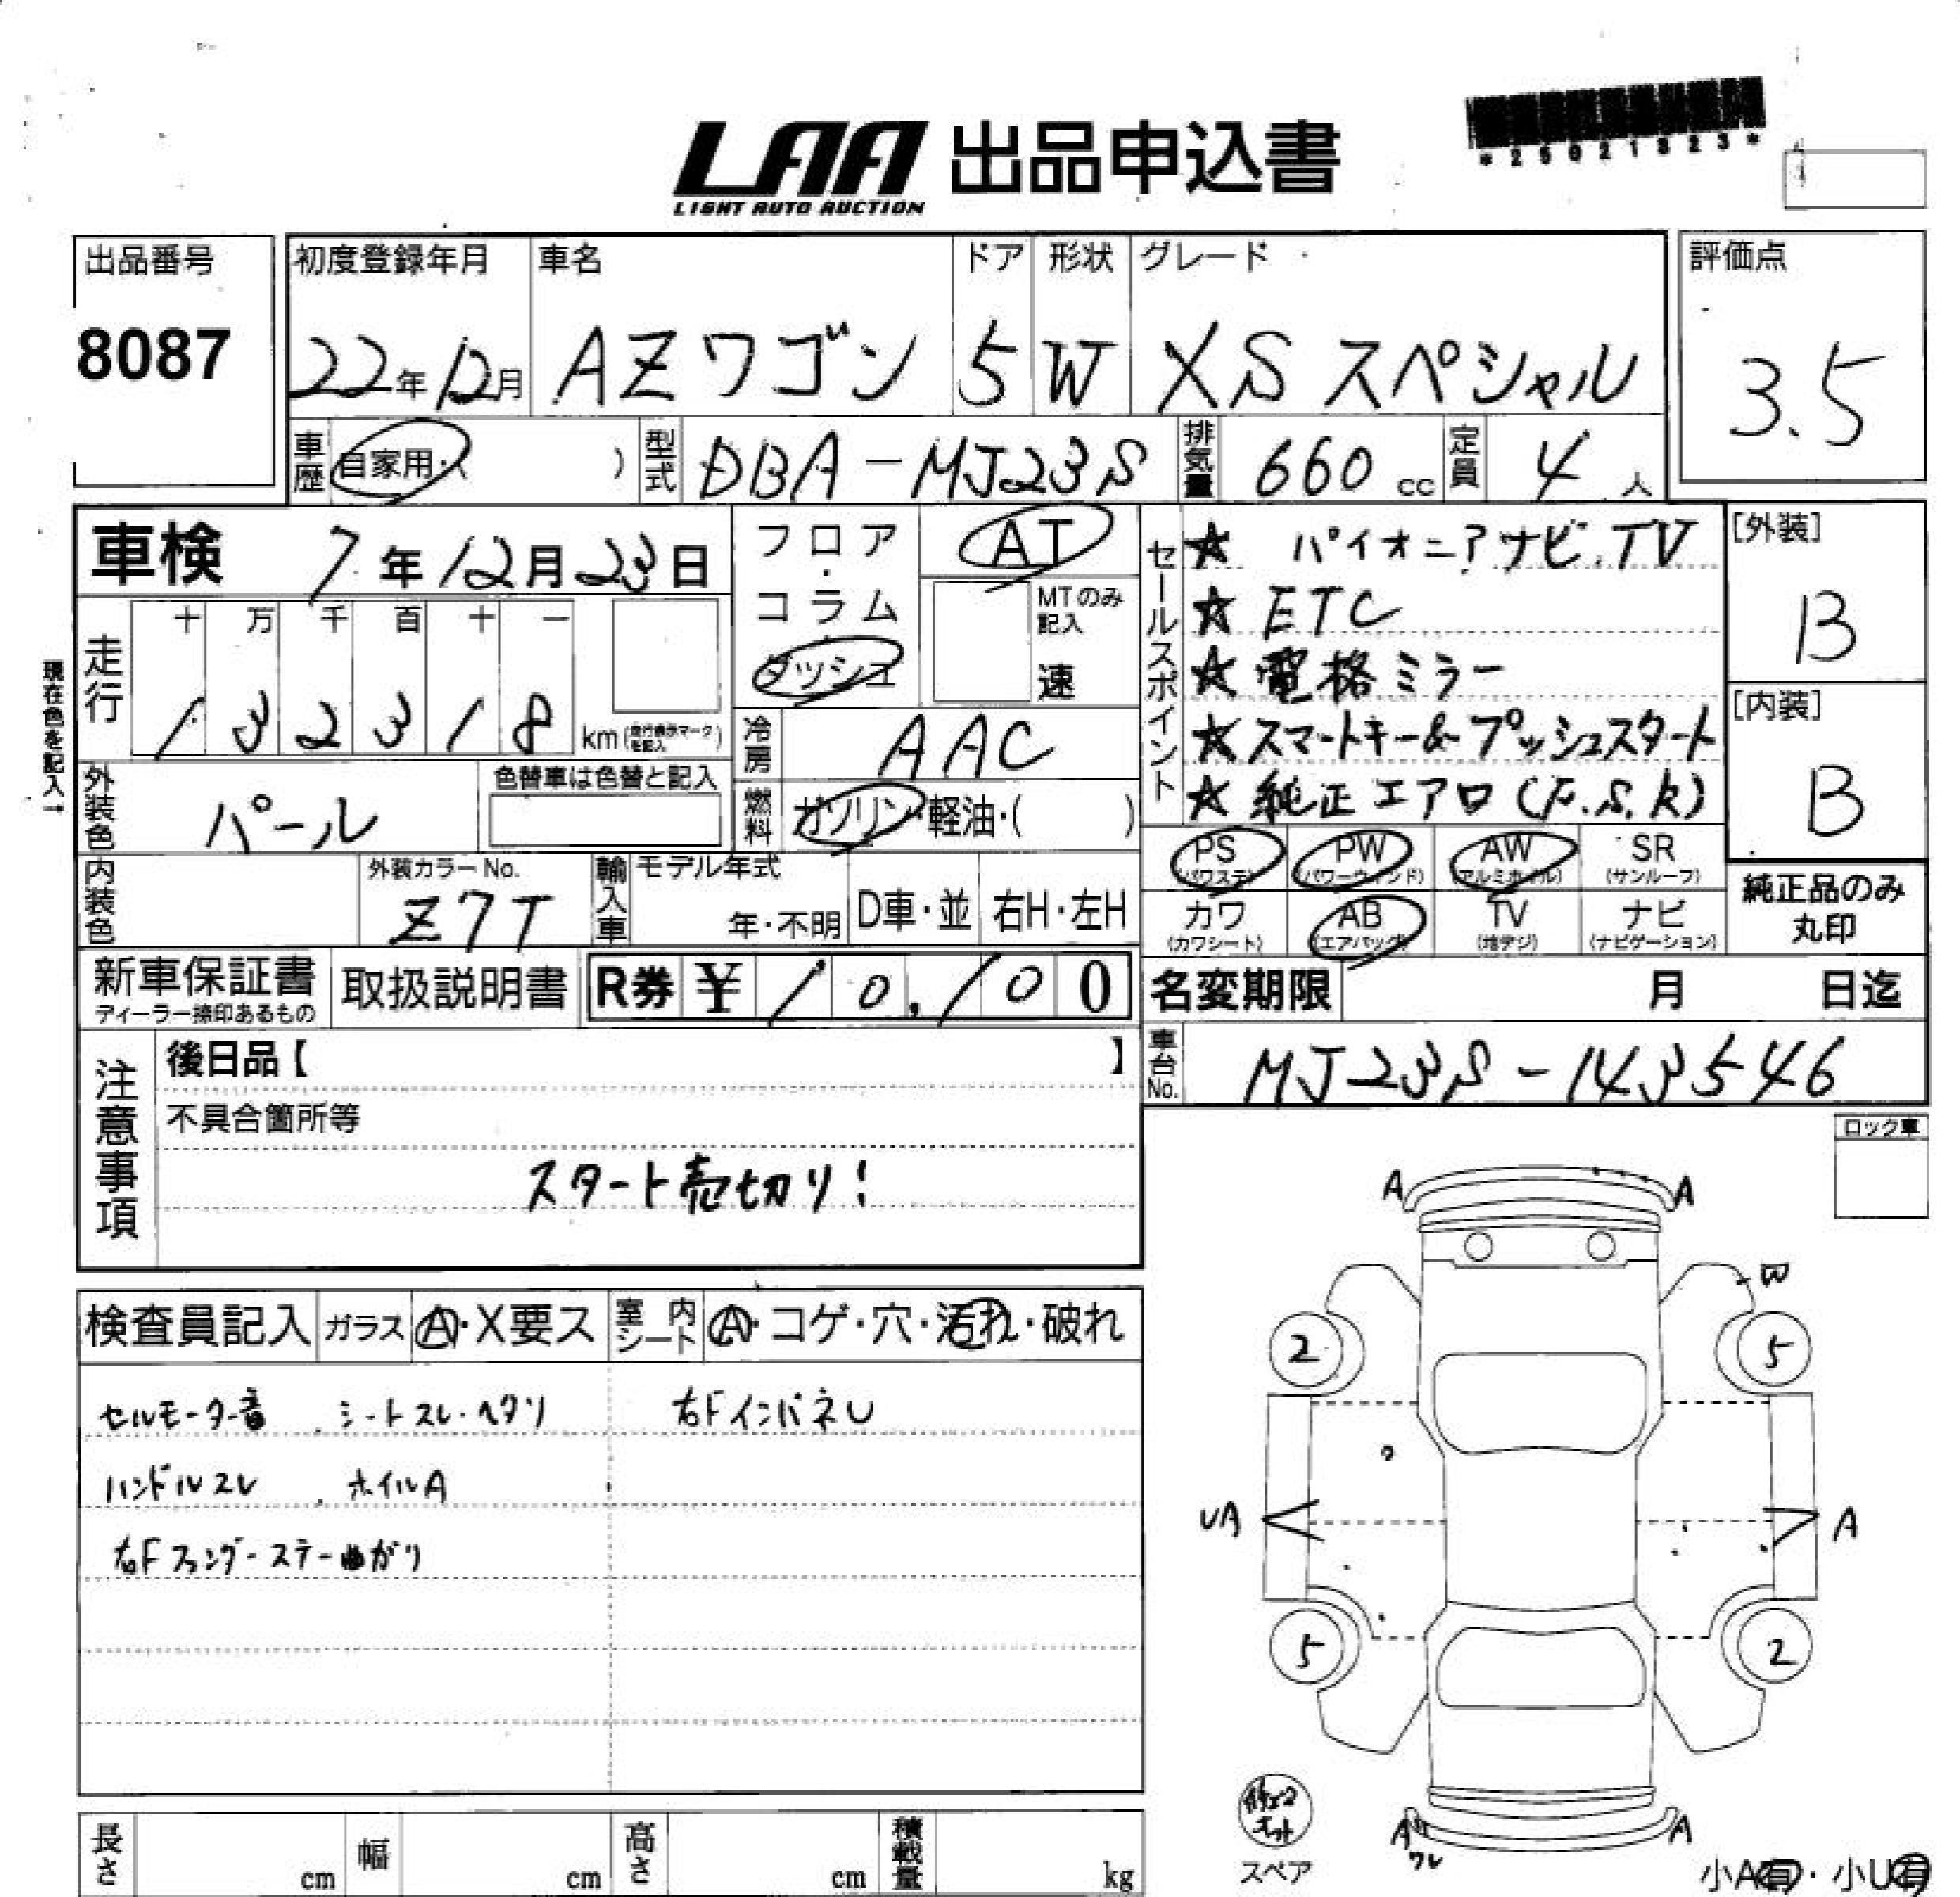 LAA 出品申込書
LIGHT AUTO AUCTION
*25021323*
出品番号
8087
初度登録年月
22年12月
車名
AZワゴン
ドア
5
形状
W
グレード
XSスペシャル
評価点
3.5
車歴
自家用・( )
型式
DBA-MJ23S
排気量
660 cc
定員
4 人
車検 7年12月23日
フロア・コラム
ダッシュ
AT
MTのみ記入
速
セールスポイント
☆ パイオニアナビ.TV
☆ ETC
☆ 電格ミラー
☆ スマートキー&プッシュスタート
☆ 純正エアロ(F.S.R)
[外装]
B
[内装]
B
現在色を記入→
走行
十 万 千 百 十 一
1 3 2 3 1 8
km(走行表示マークを記入)
冷房
AAC
外装色
パール
色替車は色替と記入
燃料
ガソリン・軽油・( )
PS (パワステ)
PW (パワーウィンド)
AW (アルミホイル)
SR (サンルーフ)
カワ (カワシート)
AB (エアバッグ)
TV (地デジ)
ナビ (ナビゲーション)
純正品のみ
丸印
内装色
外装カラーNo.
Z7T
輸入車
モデル年式
年・不明
D車・並
右H・左H
新車保証書
ディーラー捺印あるもの
取扱説明書
R券 ¥10,100
名変期限 月 日迄
車台No.
MJ23S-143546
注意事項
後日品【 】
不具合箇所等
スタート売切り!
ロック車
検査員記入
ガラス
A・X要ス
室内シート
A・コゲ・穴・汚れ・破れ
セルモーター音 . シートスレ・ヘタリ
右FインパネU
ハンドルスレ . ホイルA
右Fフェンダーステー曲がり
A A
W
2 5
UA A
5 2
A A
ワレ
スペア
小A有・小U有
長さ cm
幅 cm
高さ cm
積載量 kg